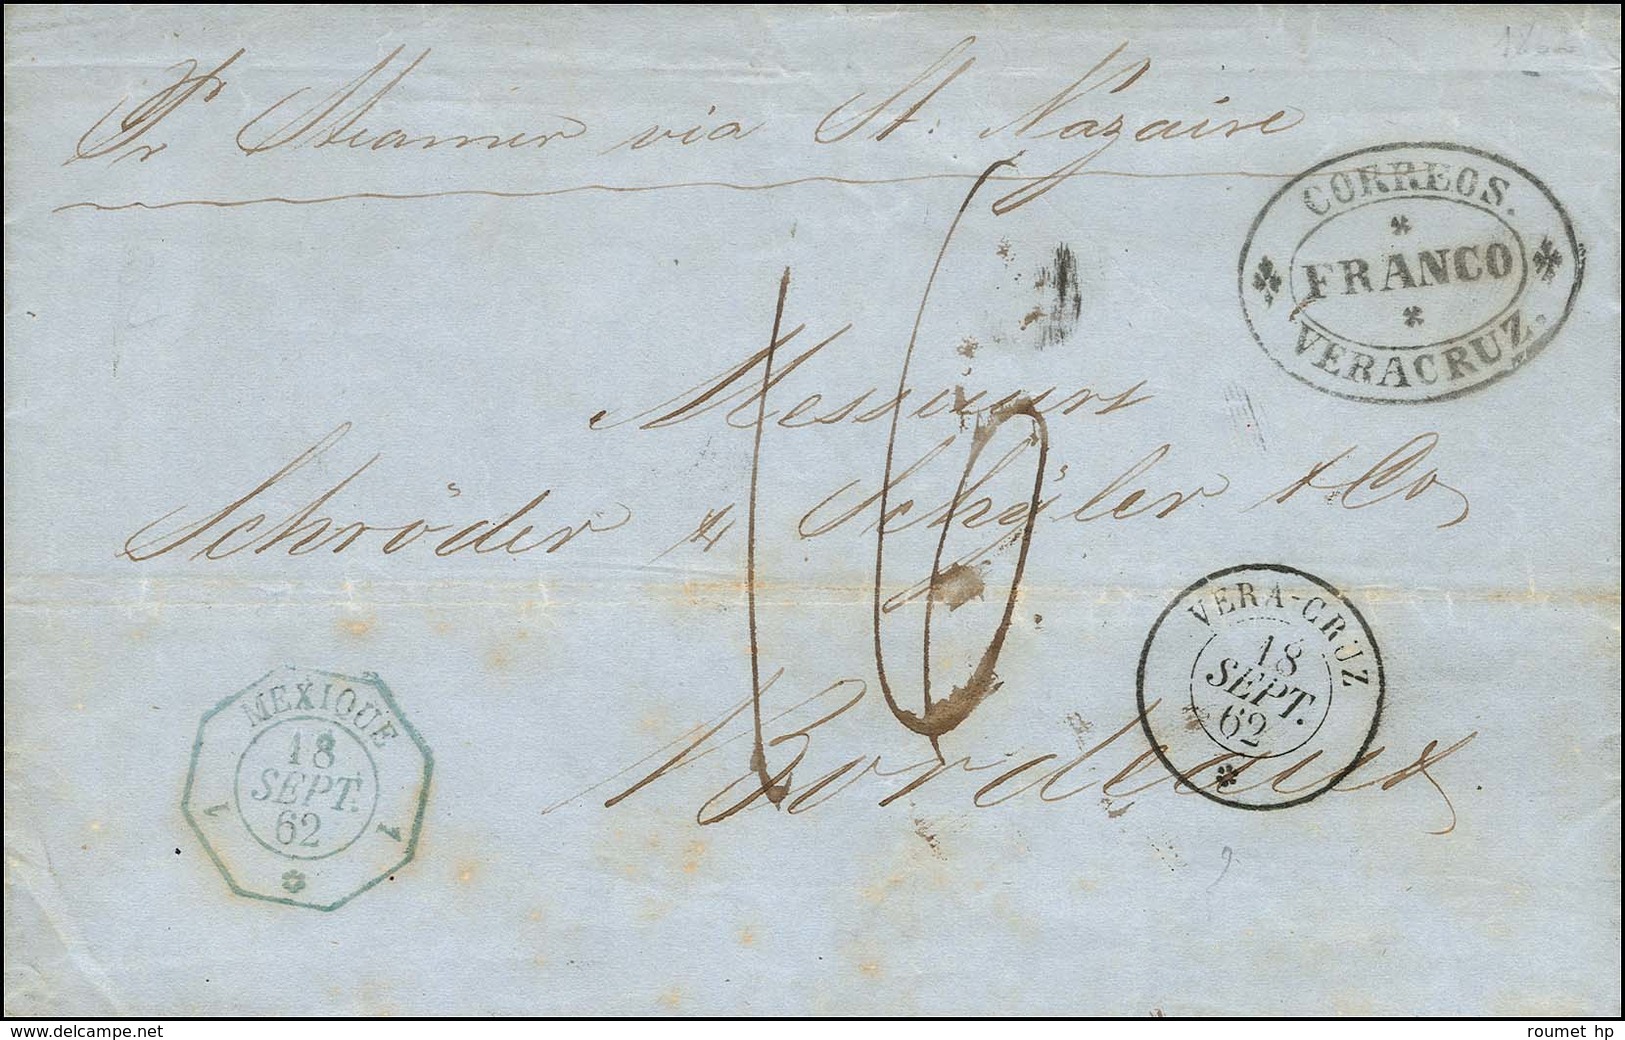 Pr Steamer via St. Nazaire
CORREOS.
FRANCO
VERACRUZ.
16
Messieurs
Schröder & Schÿler & Co
Bordeaux
VERA-CRUZ
18
SEPT.
62
MEXIQUE
18
SEPT.
62
1 1
www.delcampe.net
roumet hp